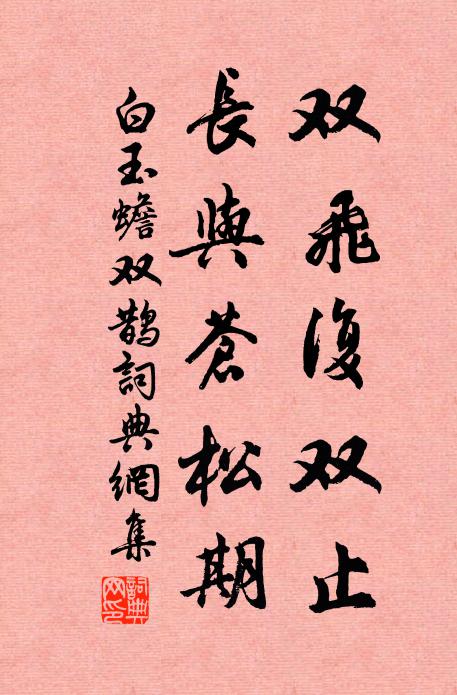 双飛復双止
長與蒼松期
白玉蟾双鵲詞典網集
詞典
网印